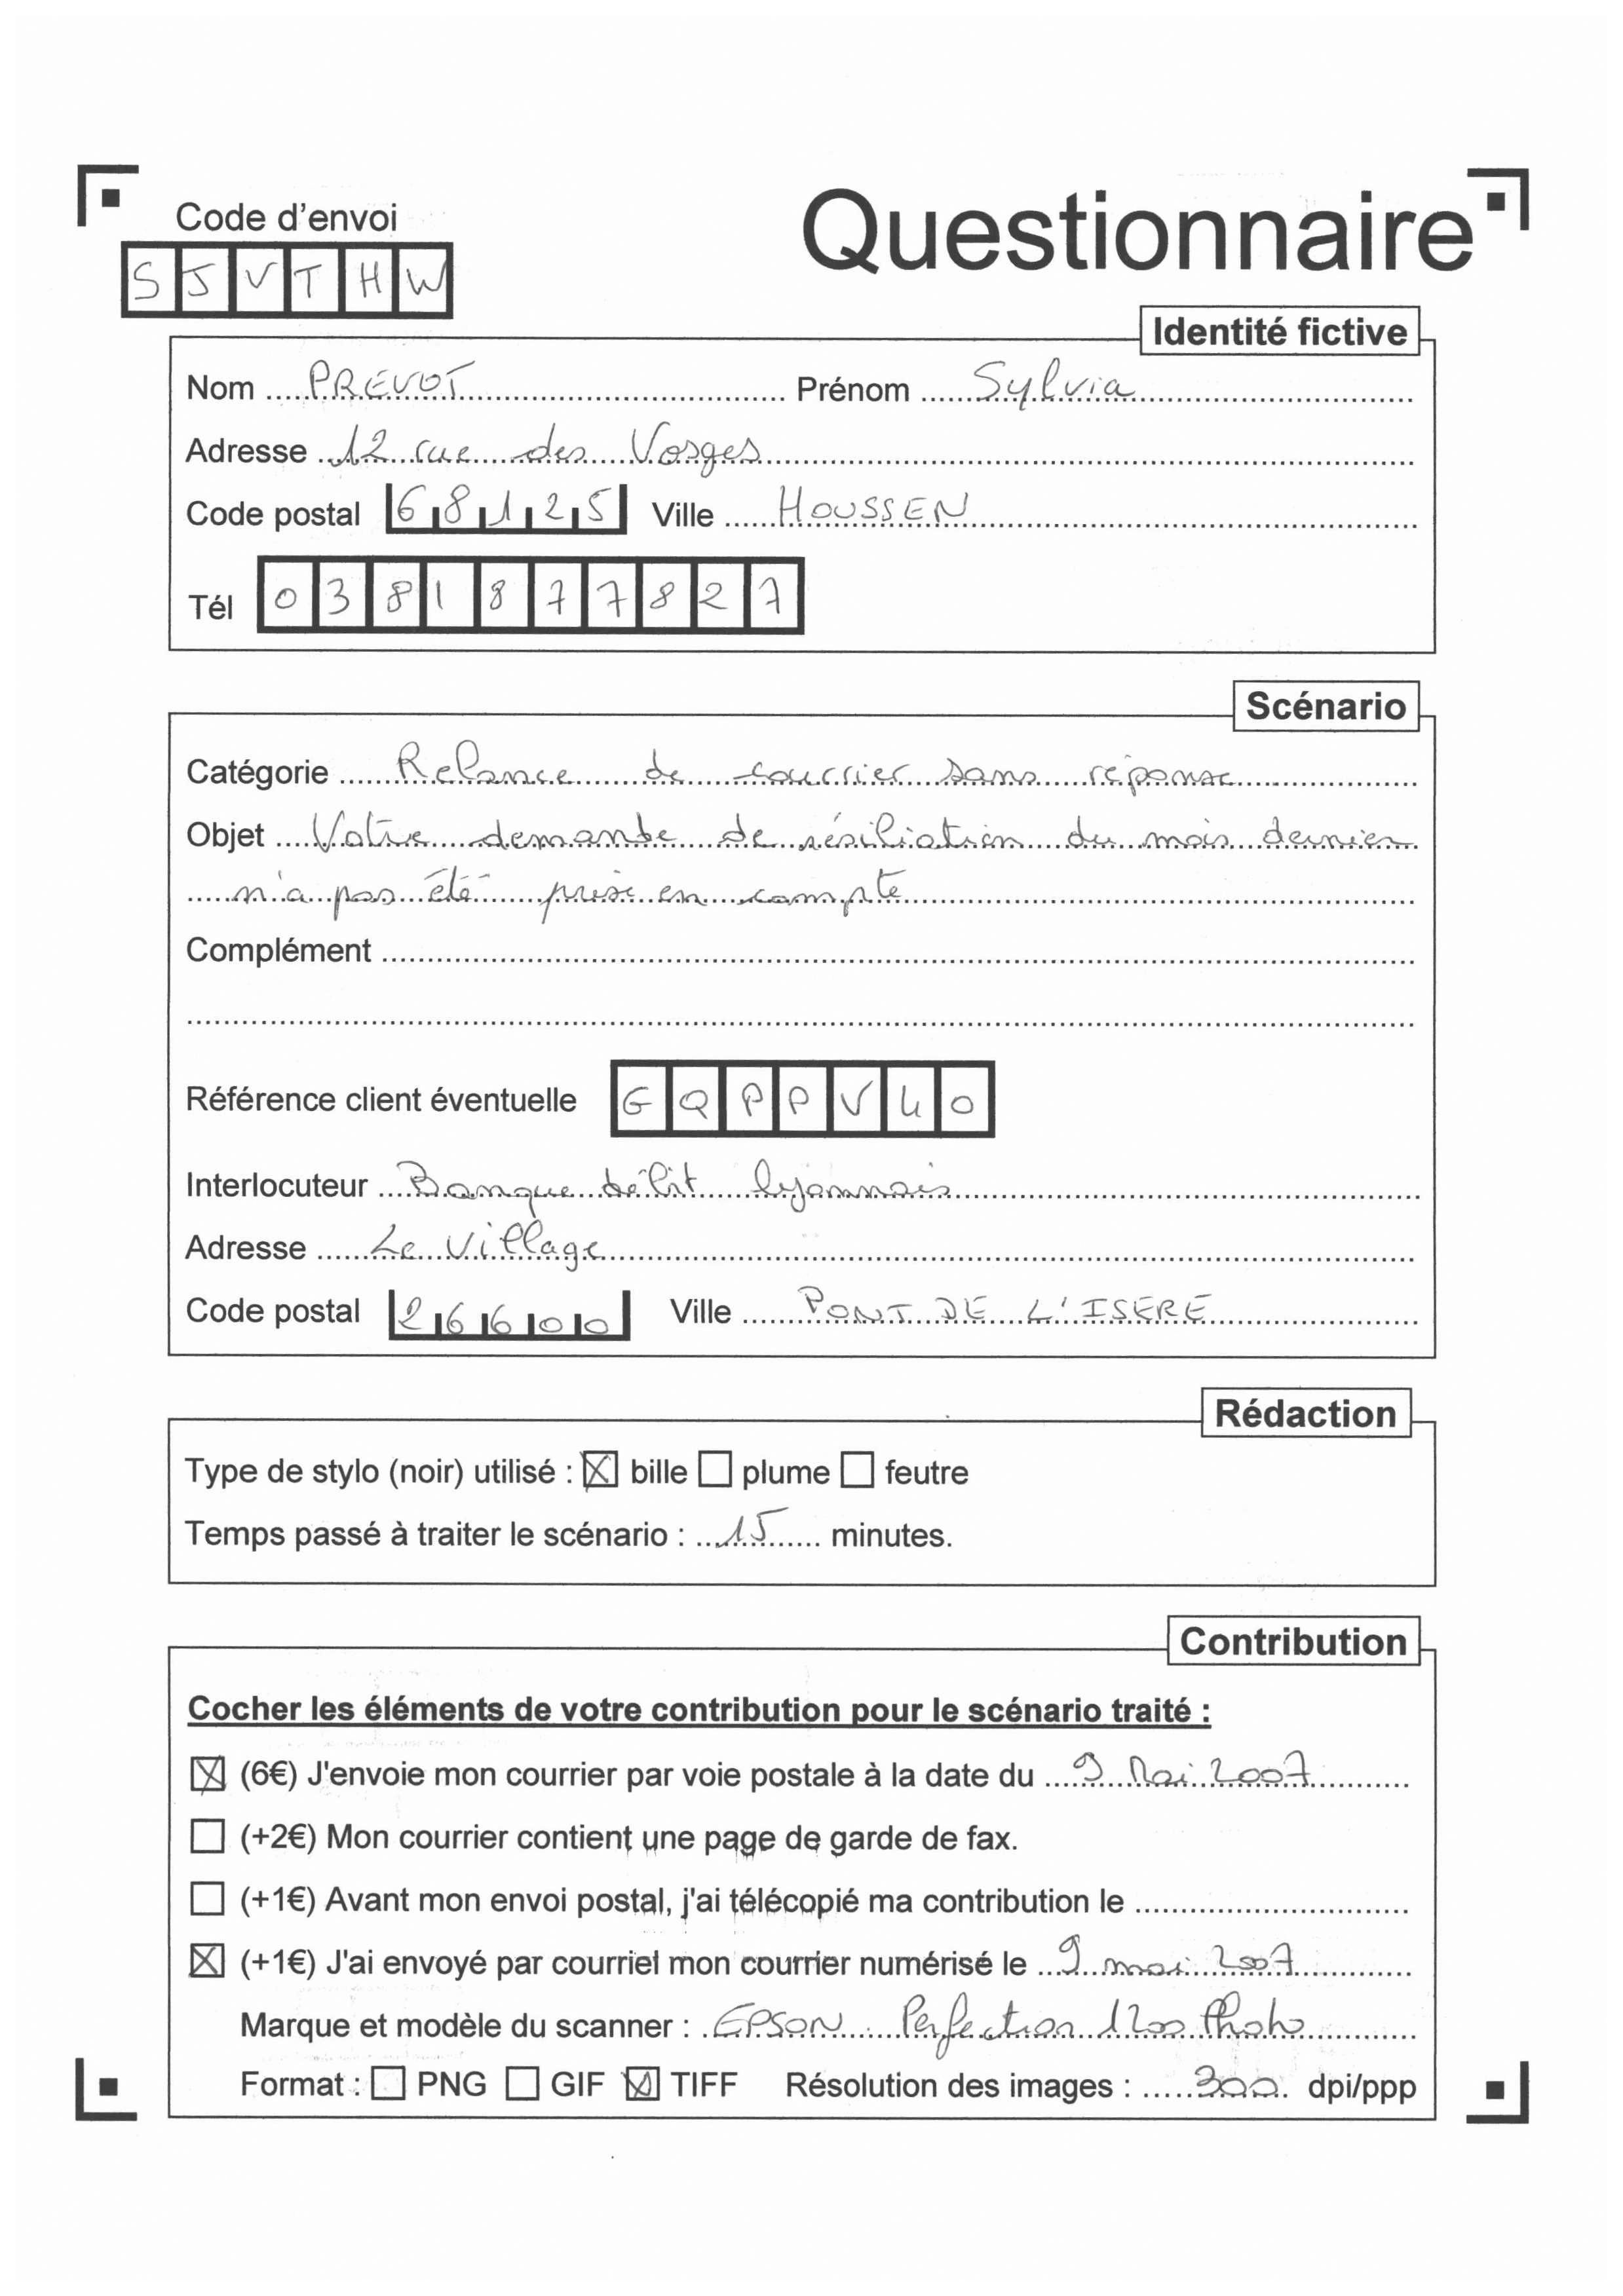 Code d'envoi
Questionnaire
S J V T H W
Identité fictive
Nom PREVOT Prénom Sylvia
Adresse 12 rue des Vosges
Code postal 68125 Ville HOUSSEN
Tél 0381877827
Scénario
Catégorie Relance de courrier sans réponse
Objet Votre demande de résiliation du mois dernier
n'a pas été prise en compte
Complément
Référence client éventuelle GQPPV40
Interlocuteur Banque délit lyonnais
Adresse Le Village
Code postal 26600 Ville PONT DE L'ISERE
Rédaction
Type de stylo (noir) utilisé : ☒ bille ☐ plume ☐ feutre
Temps passé à traiter le scénario : 15 minutes.
Contribution
Cocher les éléments de votre contribution pour le scénario traité :
☒ (6€) J'envoie mon courrier par voie postale à la date du 9 Mai 2007
☐ (+2€) Mon courrier contient une page de garde de fax.
☐ (+1€) Avant mon envoi postal, j'ai télécopié ma contribution le
☒ (+1€) J'ai envoyé par courriel mon courrier numérisé le 9 mai 2007
Marque et modèle du scanner : EPSON Perfection 1200 Photo
Format : ☐ PNG ☐ GIF ☒ TIFF Résolution des images : 300 dpi/ppp